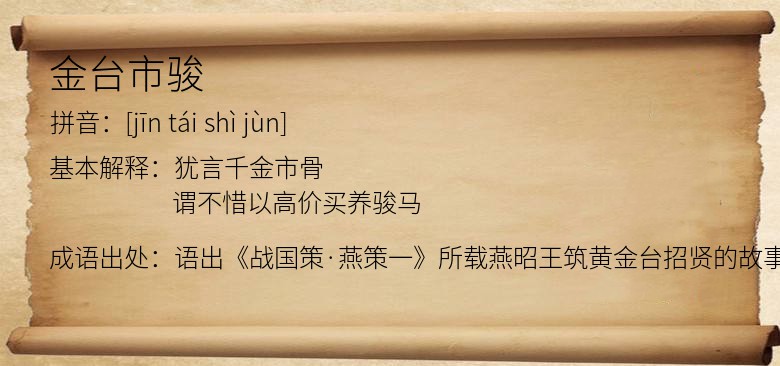 金台市骏
拼音：[jīn tái shì jùn]
基本解释：犹言千金市骨
谓不惜以高价买养骏马
成语出处：语出《战国策·燕策一》所载燕昭王筑黄金台招贤的故事